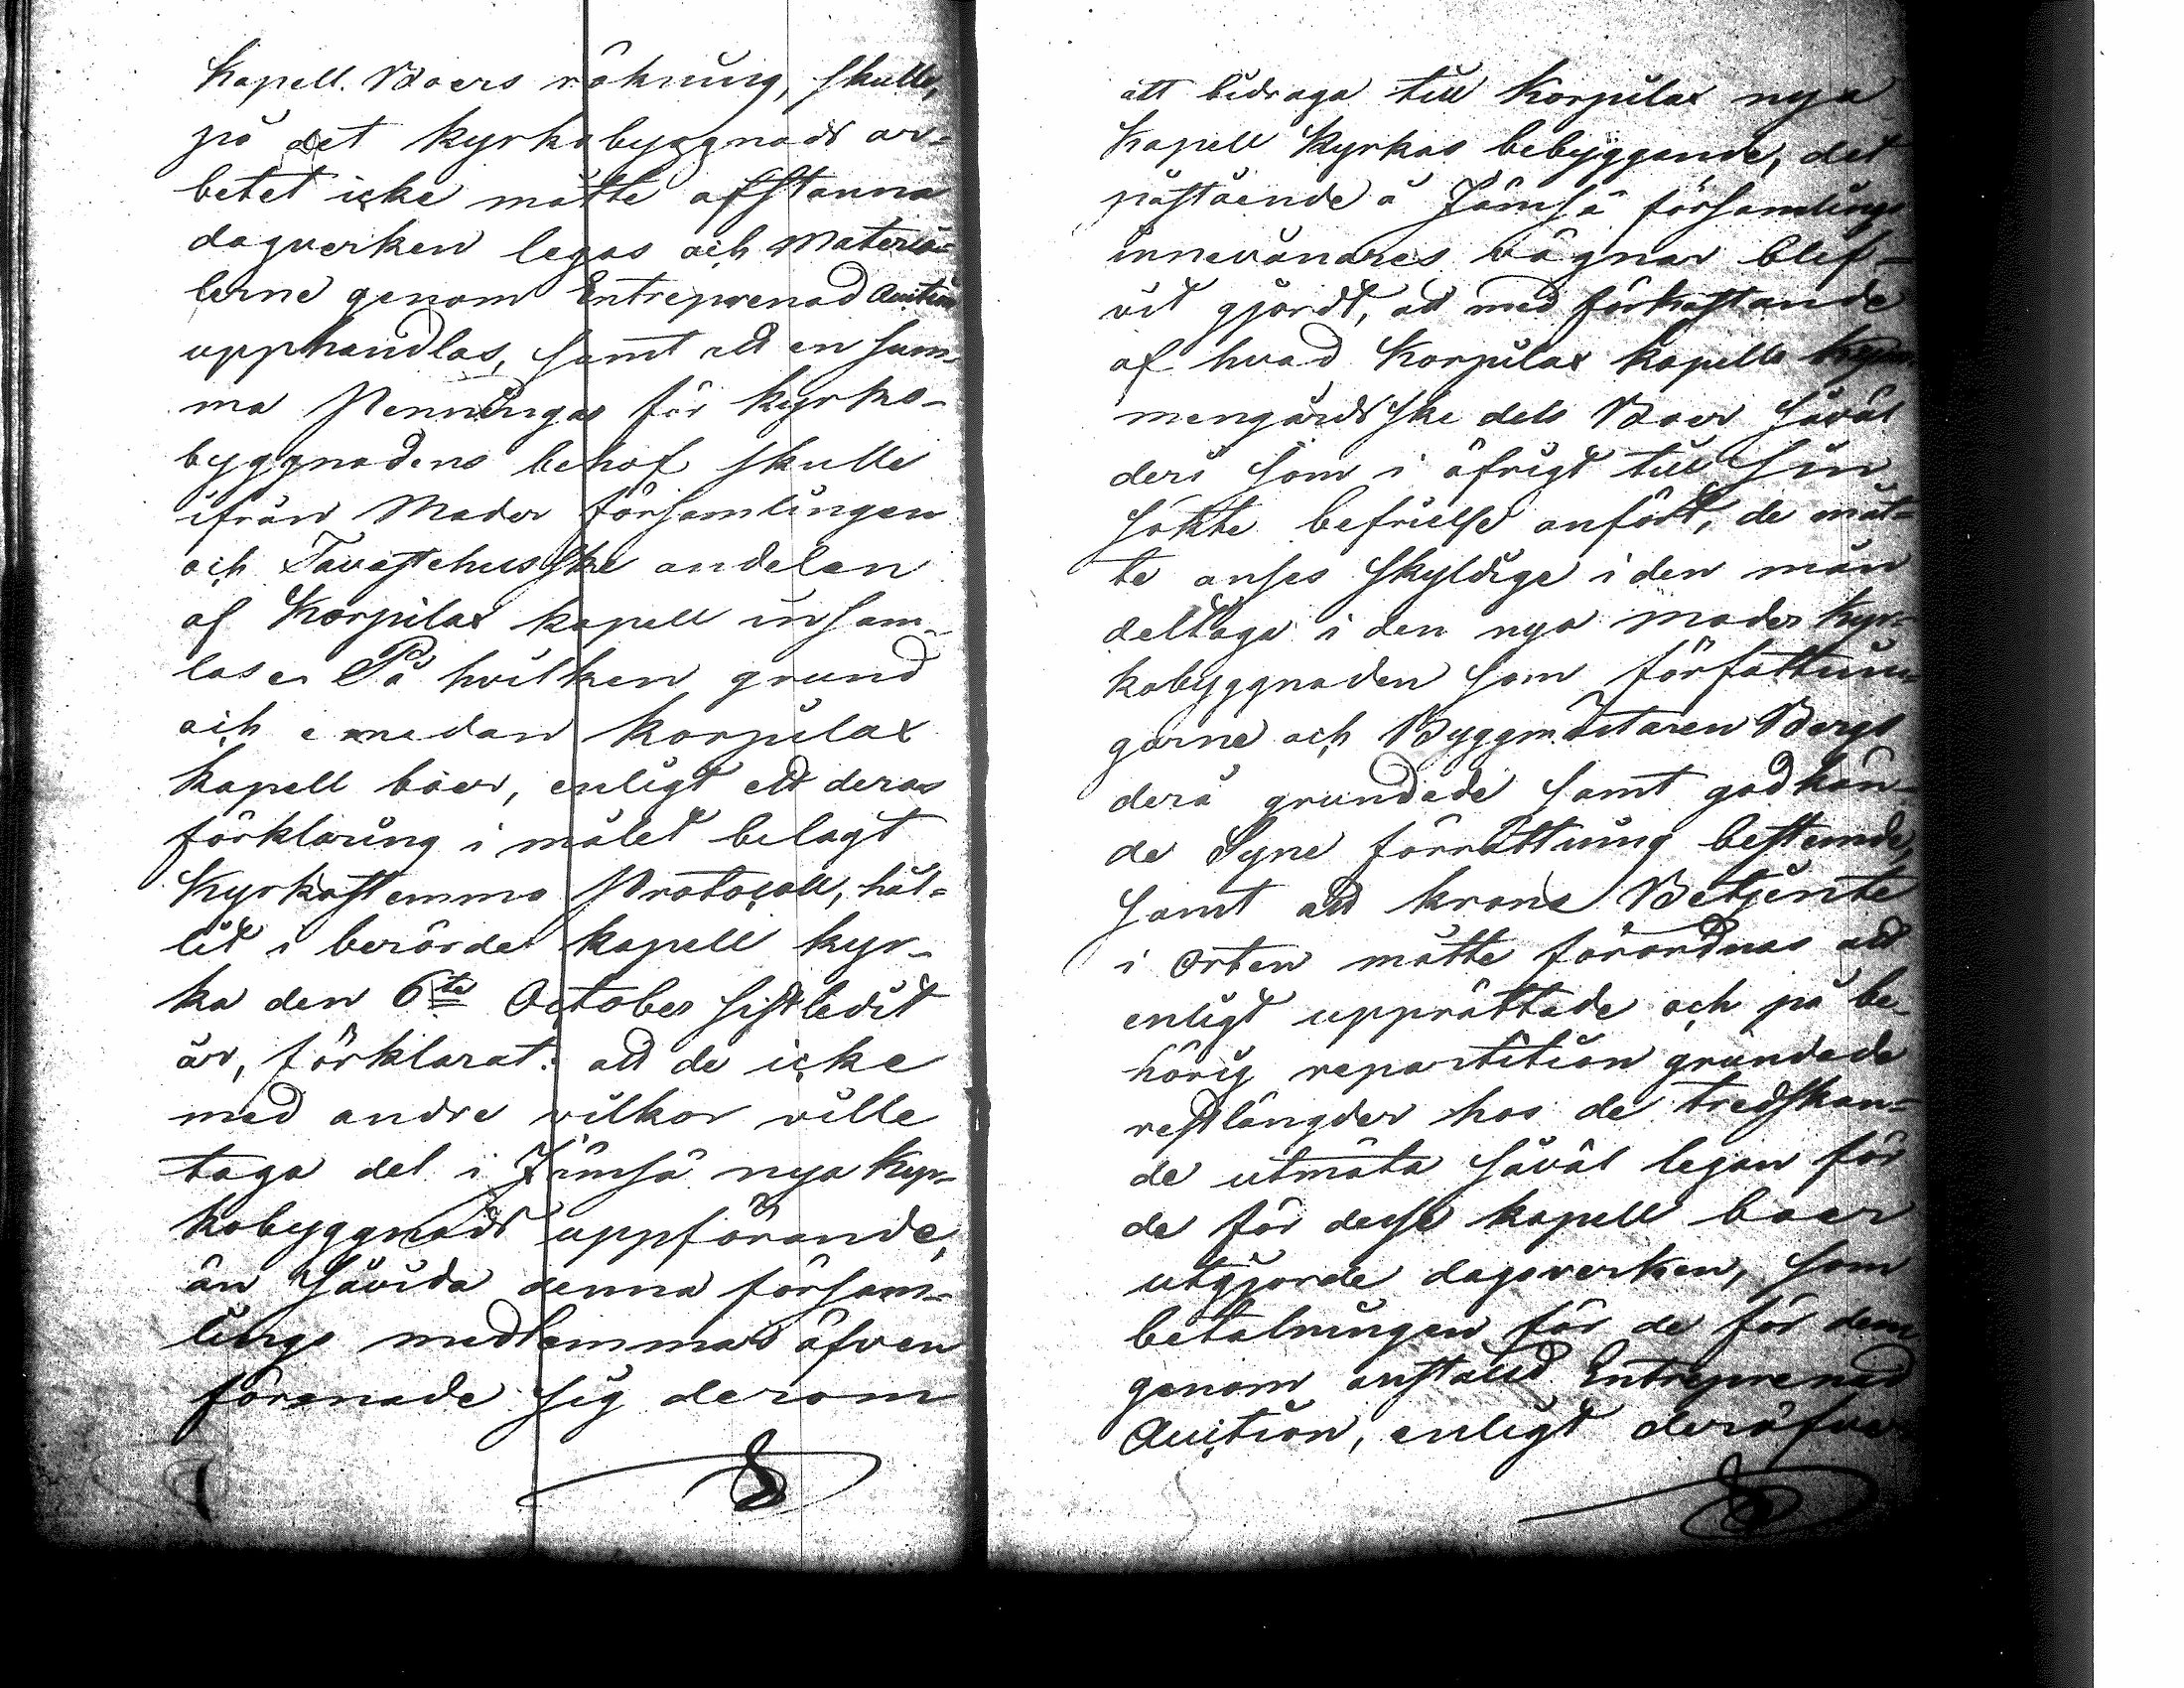 Kapell. Boers räkning, skulle,
på det kyrkobyggnads ar-
betet icke måtte afstanna
dagverken legas och Materia-
lerne genom Entreprenad Auction
upphandlas, samt att en sum-
ma Penningar för kyrko-
byggnadens behof skulle
ifrån Moder församlingen
och Tavastehusske andelen
af Korpilax kapell insam-
las. På hvilken grund
och emedan Korpilax
Kapell boer, enligt ett deras
förklaring i målet belagt
Kyrkostemmo Protocoll, hål-
lit i berörde kapell kyr-
ka den 6te October sistledit
år, förklarat: att de icke
med andre vilkor ville
taga del i Jämsä nya Kyr-
kobyggnads uppförande,
än såvida denna försam-
lings medlemmar äfven
förenade sig derom
att bidraga till Korpilax nya
Kapell Kyrkas bebyggande, det
påstående å Jämsä församlings
innevånares vägnar blif-
vit gjordt, att med förkastande
af hvad Korpilax kapells Kym-
menegårdske dels Boer såväl
deri som i öfrigt till sin
sökte befrielse anfört, de måt-
te anses skyldige i den mån
deltaga i den nya moder kyr-
kobyggnaden som författnin-
garne och Byggmästaren Bergs
derå grundade samt godkän-
de Syne förrättning bestemde,
samt att krono Betjente
i Orten måtte förordnas att
enligt upprättade och på be-
hörig repartition grundade
restlängder hos de tredskan-
de utmäta såväl legan för
de för desse kapell boer
utgjorde dagsverken, som
betalningen för de för dem
genom anstäld Entreprenad
Auction, enligt deröfver